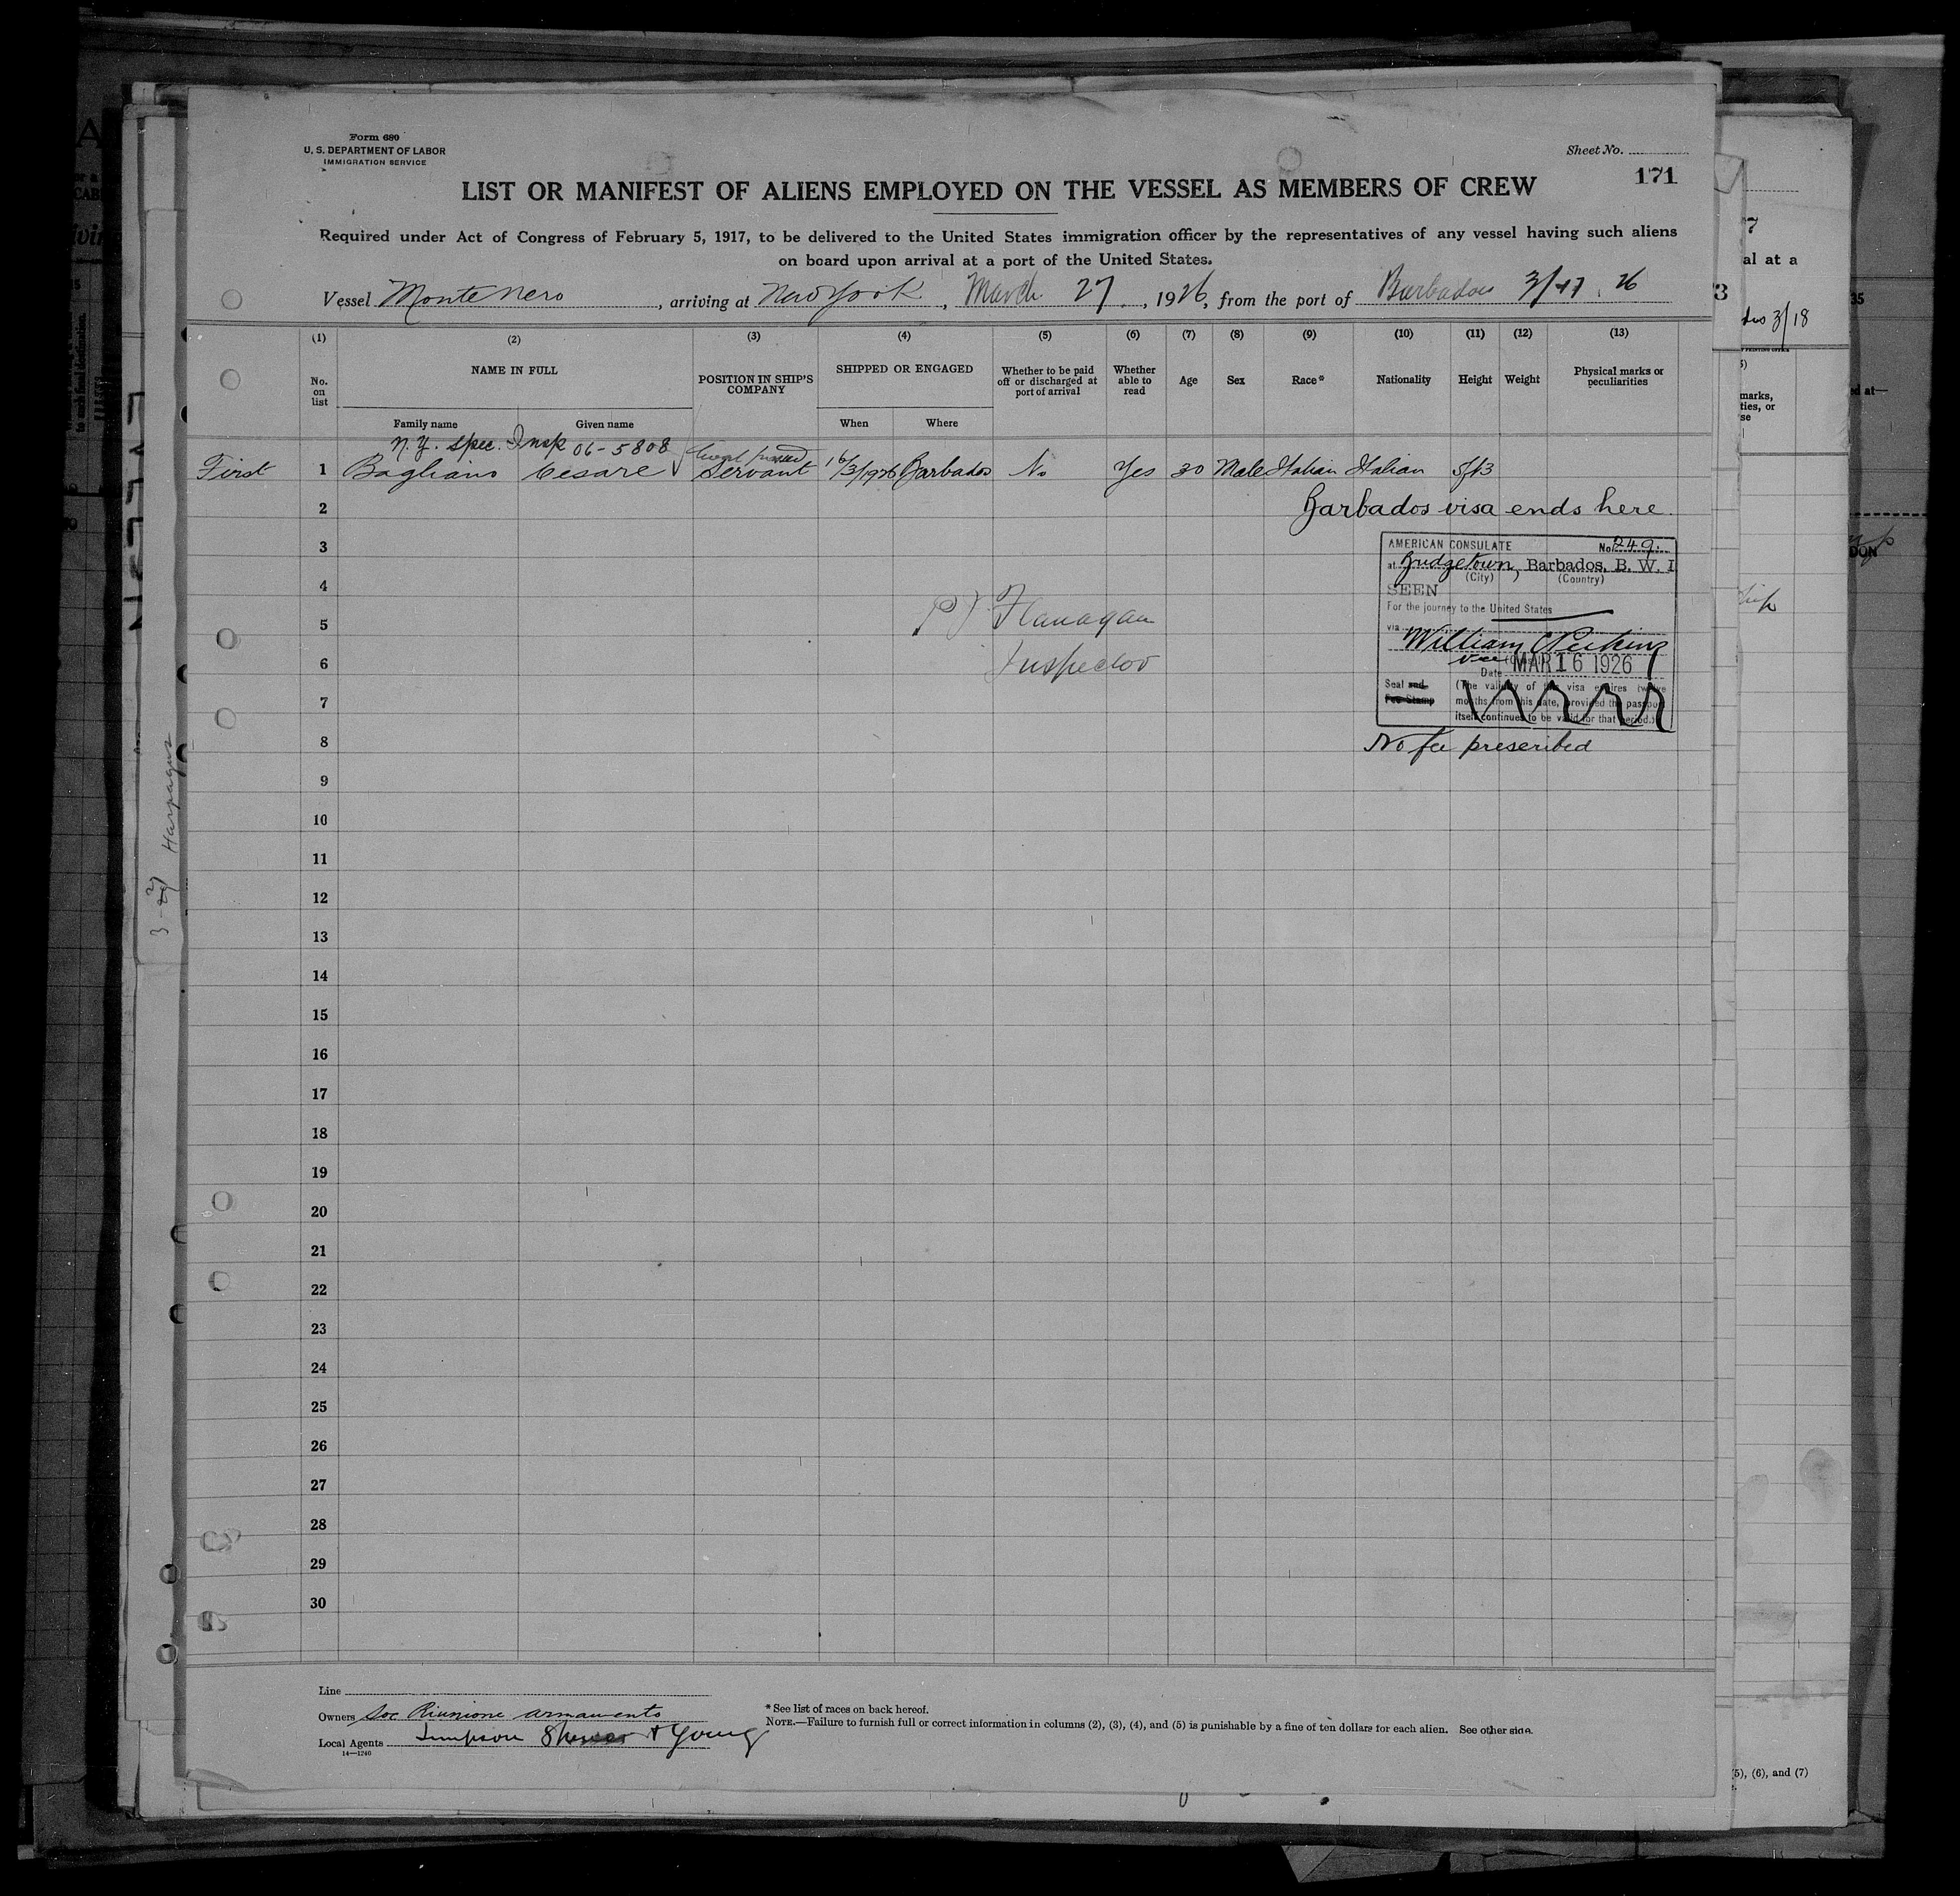 Form 680
U. S. DEPARTMENT OF LABOR
IMMIGRATION SERVICE
Sheet No.
171
LIST OR MANIFEST OF ALIENS EMPLOYED ON THE VESSEL AS MEMBERS OF CREW
Required under Act of Congress of February 5, 1917, to be delivered to the United States immigration officer by the representatives of any vessel having such aliens
on board upon arrival at a port of the United States.
Vessel Montenero, arriving at New York, March 27, 1926, from the port of Barbados 3/17 26
(1) (2) (3) (4) (5) (6) (7) (8) (9) (10) (11) (12) (13)
No. on list
NAME IN FULL
Family name Given name
POSITION IN SHIP'S COMPANY
SHIPPED OR ENGAGED
When Where
Whether to be paid off or discharged at port of arrival
Whether able to read
Age Sex Race* Nationality Height Weight
Physical marks or peculiarities
N.Y. Spec. Insp 06-5808
First 1 Bagliano Cesare Servant 16/3/1926 Barbados No Yes 30 Male Italian Italian 5f13
2 Barbados visa ends here.
3
AMERICAN CONSULATE No. 249.
at Bridgetown, Barbados, B. W. I
(City) (Country)
SEEN
For the journey to the United States
via
William Perkins
MAR 16 1926
Date
Seal and Fee Stamp
(The validity of this visa expires twelve
months from this date, provided the passport
itself continues to be valid for that period.)
No fee prescribed
4
5 Flanagan
6 Inspector
7
8
9
10
11
12
13
14
15
16
17
18
19
20
21
22
23
24
25
26
27
28
29
30
Line
Owners Soc Riunione armamento
Local Agents Simpson & Young
14—1240
* See list of races on back hereof.
NOTE.—Failure to furnish full or correct information in columns (2), (3), (4), and (5) is punishable by a fine of ten dollars for each alien. See other side.
3-27 Harpagus
al at a
3/18
marks,
ties, or
se
(5), (6), and (7)